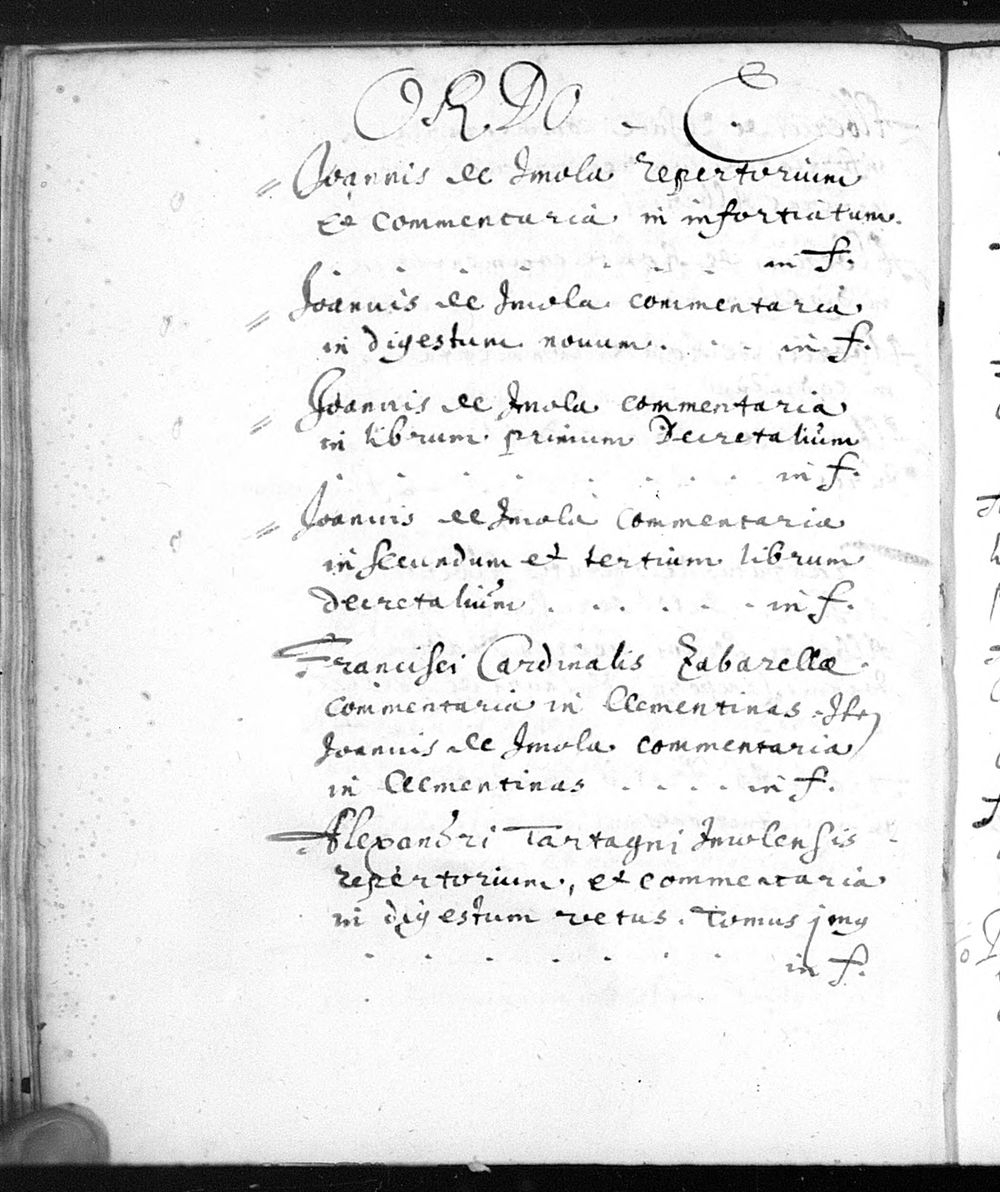 ORDO . E .
Joannis de Imola repertorium
et commentaria in infortiatum.
. . . . . . . . in f.
Joannis de Imola commentaria
in digestum nouum . . . in f.
Joannis de Imola commentaria
in librum primum Decretalium
. . . . . . . . in f.
Joannis de Imola commentaria
in secundum et tertium librum
Decretalium . . . . . . in f.
Francisci Cardinalis Zabarellæ
commentaria in Clementinas.
Joannis de Imola commentaria
in Clementinas . . . . in f.
Alexandri Tartagni Imolensis
repertorium, et commentaria
in digestum vetus. Tomus
. . . . . . . in f.